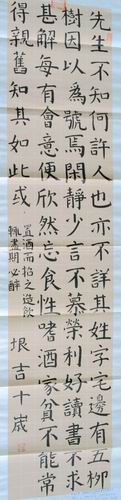 先生不知何許人也亦不詳其姓字宅邊有五柳
樹因以為號焉閑靜少言不慕榮利好讀書不求
甚解每有會意便欣然忘食性嗜酒家貧不能常
得親舊知其如此或
置酒而招之造飲
輒盡期必醉
垠吉十歲